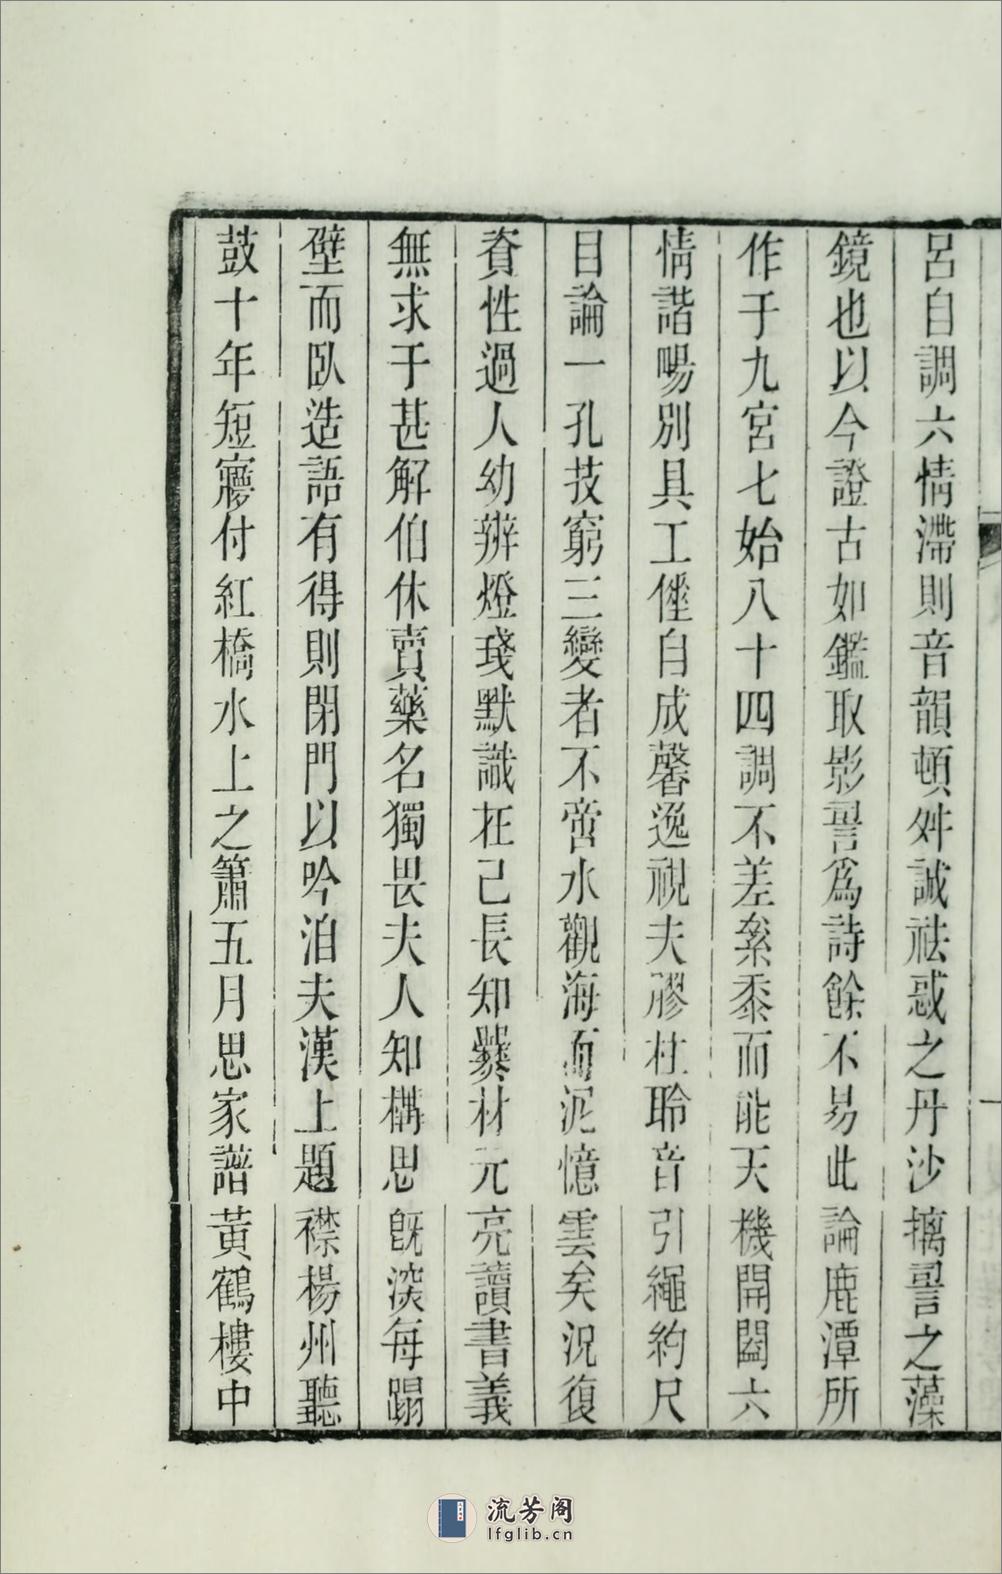 呂自調六情滯則音韻頓舛誠祛惑之丹沙摛詈之藻
鏡也以今證古如鑑取影詈爲詩餘不易此論鹿潭所
作于九宮七始八十四調不差絫黍而能天機開闔六
情諧暘別具工倕自成馨逸視夫膠柱聆音引繩約尺
目論一孔技窮三變者不啻水觀海而泥憶雲矣況復
資性過人幼辨燈琖默識在己長知爨材元亮讀書義
無求于甚解伯休賣藥名獨畏夫人知構思旣深每蹋
壁而臥造語有得則閉門以吟洎夫漢上題襟楊州聽
鼓十年短㝱付紅橋水上之簫五月思家譜黃鶴樓中
流芳阁
lfglib.cn